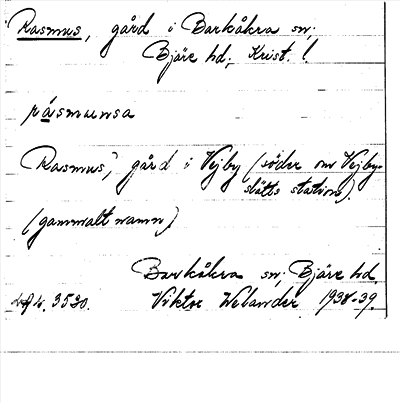 Rasmus, gård i Barkåkra sn;
Bjäre hd; Krist. l.
råsmunsa
"Rasmus", gård i Vejby (söder om Vejby-
slätts station).
(gammalt namn)
Barkåkra sn; Bjäre hd.
4. 3530. Viktor Welander 1938-39.